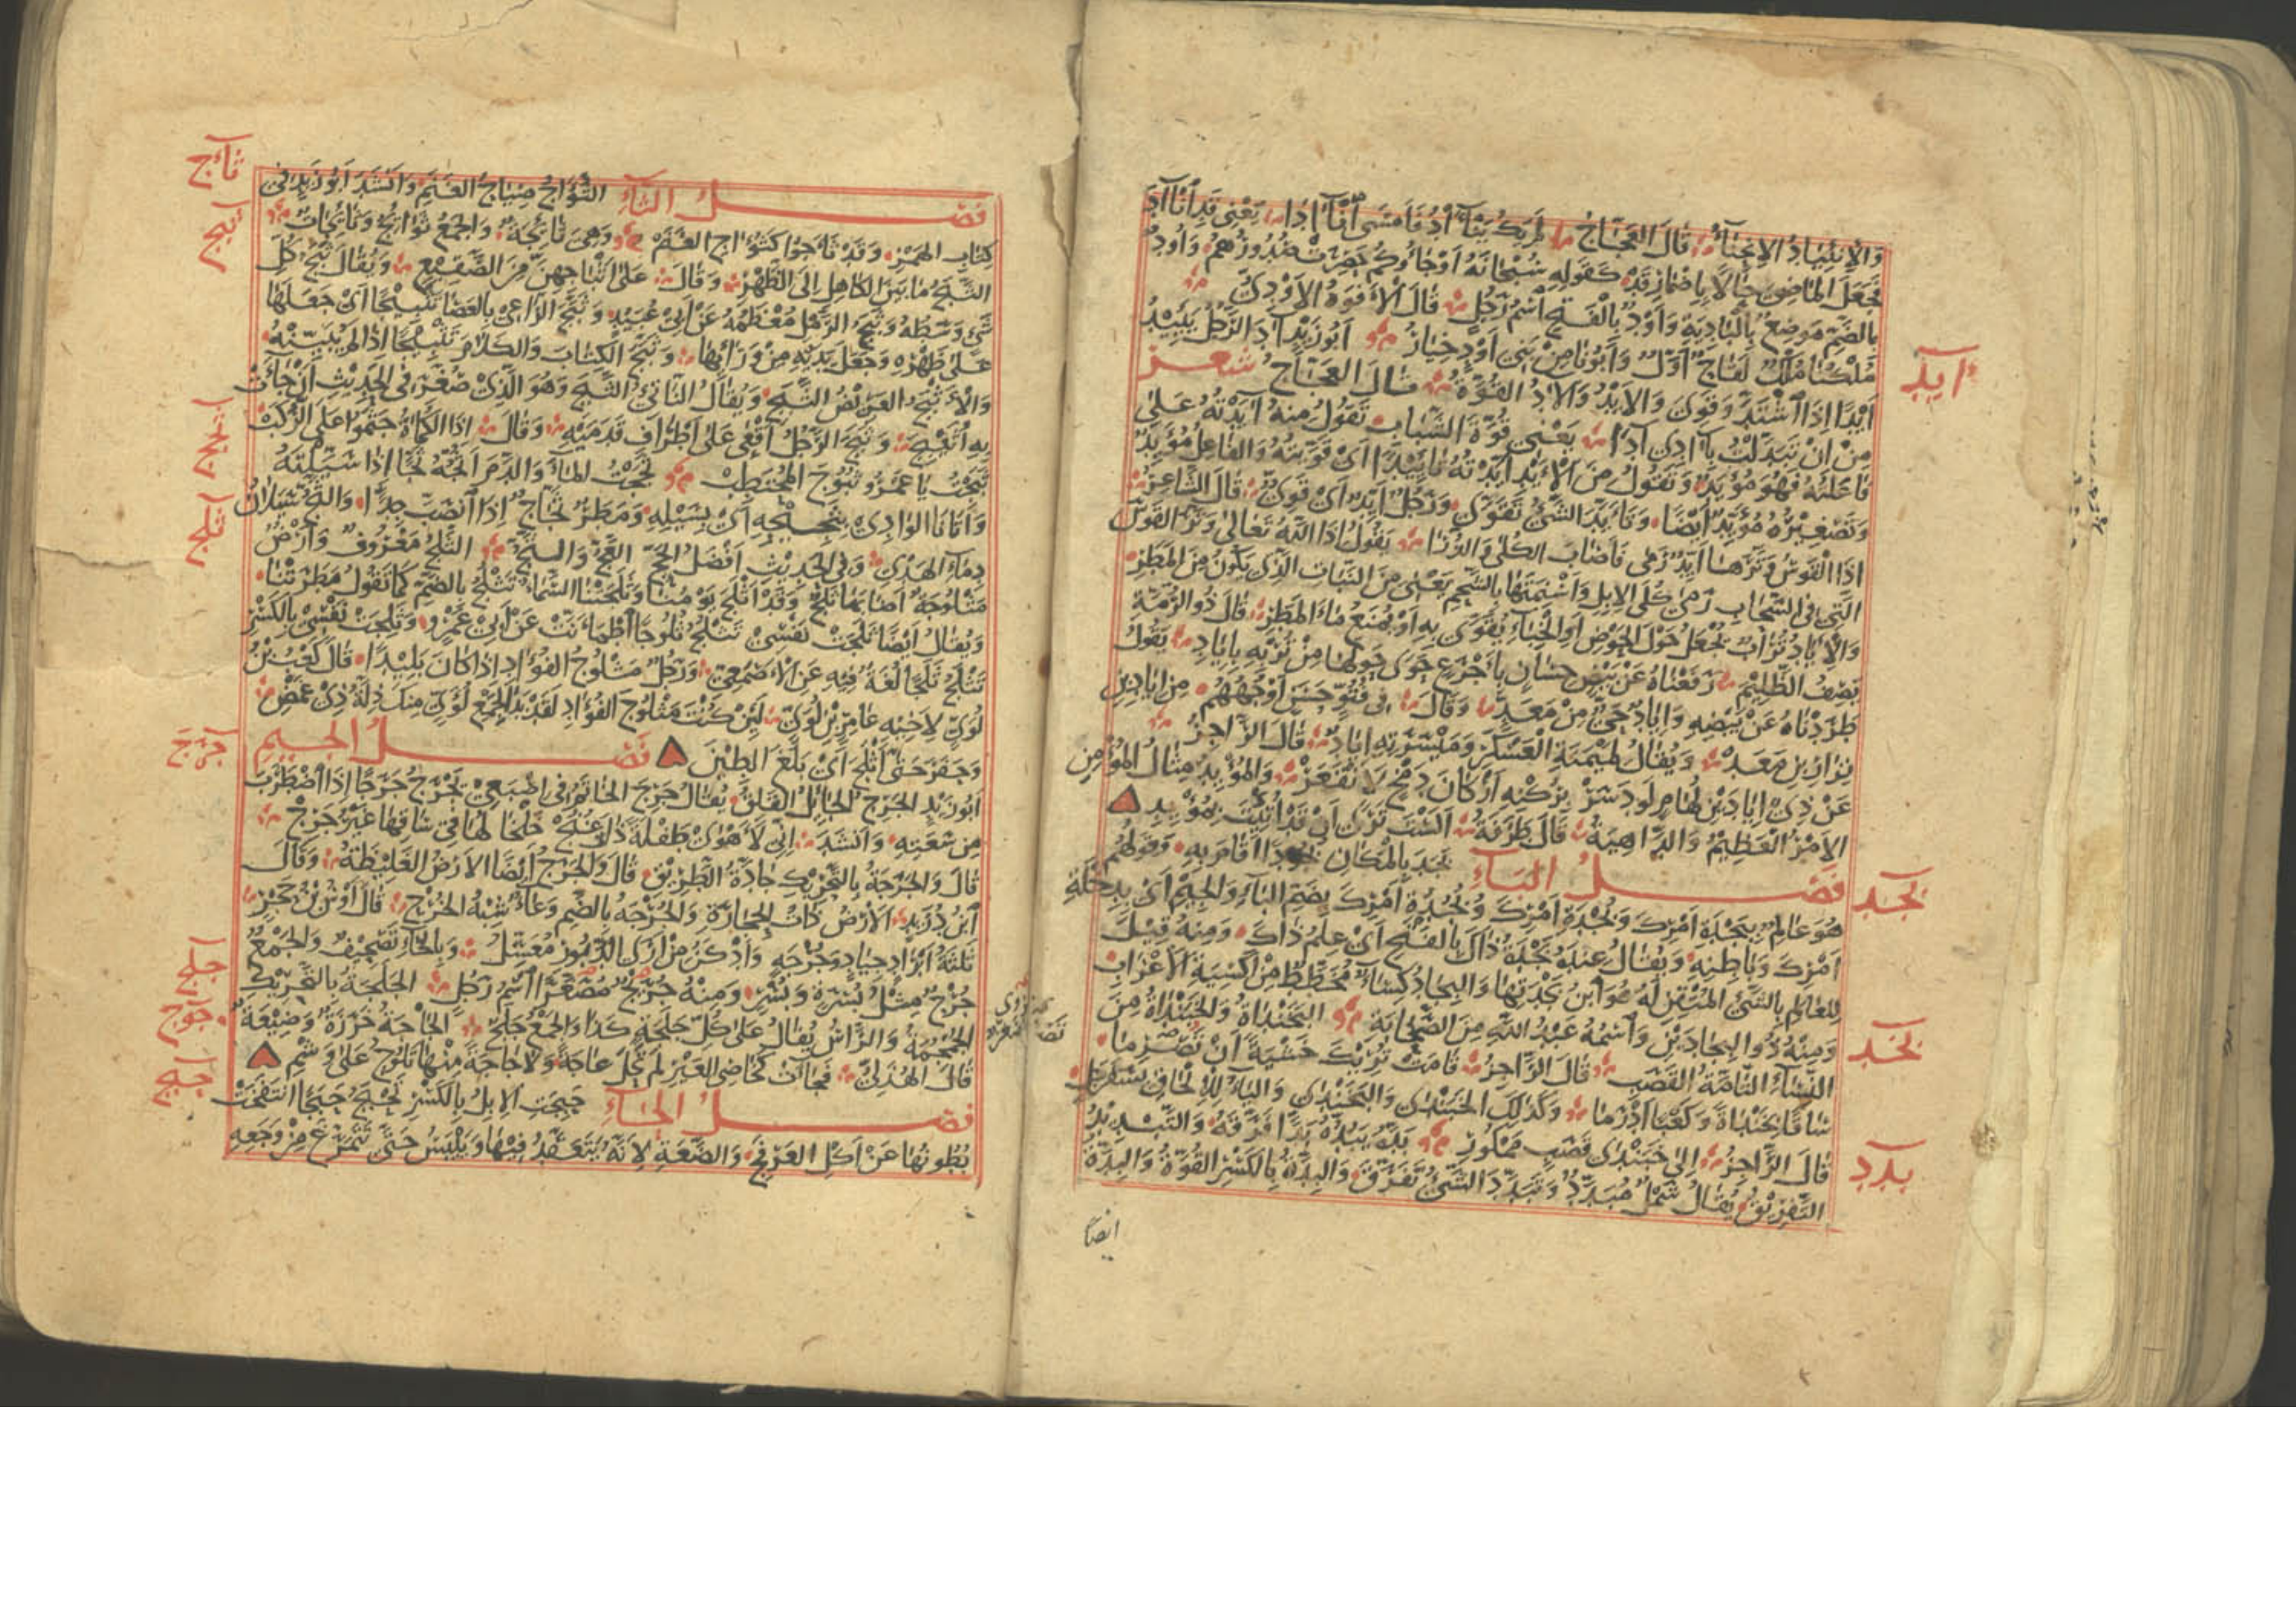 وَالِانْئِيَادُ الِانْحِنَاءُ قَالَ الْعَجَّاجُ لَمْ يَكُ يَنْآدُ فَأَمْسَى انْآدَا يَعْنِي قَدِ انْآدَ
فَجَعَلَ الْمَاضِيَ حَالًا بِإِضْمَارِ قَدْ كَقَوْلِهِ سُبْحَانَهُ أَوْ جَاءُوكُمْ حَصِرَتْ صُدُورُهُمْ وَأُودُ
بِالضَّمِّ مَوْضِعٌ بِالْبَادِيَةِ وَأَوْدٌ بِالْفَتْحِ اسْمُ رَجُلٍ قَالَ الْأَفْوَهُ الْأَوْدِيُّ
مُلْكُنَا مُلْكٌ لَقَاحٌ أَوَّلٌ وَأَبُونَا مِنْ بَنِي أَوْدٍ خِيَارُ أَبُو زَيْدٍ آدَ الرَّجُلُ يَئِيدُ
أَيْدًا إِذَا اشْتَدَّ وَقَوِيَ وَالْأَيْدُ وَالْآدُ الْقُوَّةُ قَالَ الْعَجَّاجُ شعر
مِنْ أَنْ تَبَدَّلْتُ بِآدِي آدَا يَعْنِي قُوَّةَ الشَّبَابِ تَقُولُ مِنْهُ أَيَّدْتُهُ عَلَى
فَاعَلْتُهُ فَهُوَ مُؤْيَدٌ وَتَقُولُ مِنَ الْأَيْدِ أَيَّدْتُهُ تَأْيِيدًا أَيْ قَوَّيْتُهُ وَالْفَاعِلُ مُؤَيِّدٌ
وَتَصْغِيرُهُ مُؤَيِّدٌ أَيْضًا وَتَأَيَّدَ الشَّيْءُ تَقَوَّى وَرَجُلٌ أَيِّدٌ أَيْ قَوِيٌّ قَالَ الشَّاعِرُ
إِذَا الْقَوْسُ وَتَّرَهَا أَيِّدٌ رَمَى فَأَصَابَ الْكُلَى وَالذُّرَا يَقُولُ إِذَا اللَّهُ تَعَالَى وَتَّرَ الْقَوْسَ
الَّتِي فِي السَّحَابِ رَمَى كُلَى الْإِبِلِ وَأَسْنِمَتَهَا بِالشَّحْمِ يَعْنِي مِنَ النَّبَاتِ الَّذِي يَكُونُ مِنَ الْمَطَرِ
وَالْإِيَادُ تُرَابٌ يُجْعَلُ حَوْلَ الْحَوْضِ أَوِ الْخِبَاءِ يُقَوَّى بِهِ أَوْ يَمْنَعُ مَاءَ الْمَطَرِ قَالَ ذُو الرُّمَّةِ
يَصِفُ الظَّلِيمَ دَفَعْنَاهُ عَنْ بَيْضٍ حِسَانٍ بِأَجْرَعٍ حَوَى حَوْلَهَا مِنْ تُرْبِهِ بِإِيَادِ يَقُولُ
طَرَدْنَاهُ عَنْ بَيْضِهِ وَإِيَادٌ حَيٌّ مِنْ مَعَدٍّ وَقَالَ فِي فُتُوٍّ حَسَنٍ أَوْجُهُهُمْ مِنْ إِيَادِ بْنِ
نِزَارِ بْنِ مَعَدٍّ وَيُقَالُ لِمَيْمَنَةِ الْعَسْكَرِ وَمَيْسَرَتِهِ إِيَادٌ قَالَ الرَّاجِزُ
عَنْ ذِي إِيَادَيْنِ لُهَامٍ لَوْ دَسَرْ بِرُكْنِهِ أَرْكَانَ دَمْخٍ لَانْقَعَرْ وَالْمُؤْيِدُ مِثَالُ الْمُؤْمِنِ
الْأَمْرُ الْعَظِيمُ وَالدَّاهِيَةُ قَالَ طَرَفَةُ أَلَسْتَ تَرَى أَنْ قَدْ أَتَيْتَ بِمُؤْيِدِ
فصل الباء بَجَدَ بِالْمَكَانِ بُجُودًا أَقَامَ بِهِ وَقَوْلُهُمْ
هُوَ عَالِمٌ بِبَجْدَةِ أَمْرِكَ وَبُجْدَةِ أَمْرِكَ وَبُجُدَةِ أَمْرِكَ بِضَمِّ الْبَاءِ وَالْجِيمِ أَيْ بِدِخْلَةِ
أَمْرِكَ وَبَاطِنِهِ وَيُقَالُ عِنْدَهُ بَجْدَةُ ذَاكَ بِالْفَتْحِ أَيْ عِلْمُ ذَاكَ وَمِنْهُ قِيلَ
لِلْعَالِمِ بِالشَّيْءِ الْمُتْقِنِ لَهُ هُوَ ابْنُ بَجْدَتِهَا وَالْبِجَادُ كِسَاءٌ مُخَطَّطٌ مِنْ أَكْسِيَةِ الْأَعْرَابِ
وَمِنْهُ ذُو الْبِجَادَيْنِ وَاسْمُهُ عَبْدُ اللَّهِ مِنَ الصَّحَابَةِ الْبَخَنْدَاةُ وَالْخَبَنْدَاةُ مِنَ
النِّسَاءِ التَّامَّةُ الْقَصَبِ قَالَ الرَّاجِزُ قَامَتْ تُرِيكَ خَشْيَةً أَنْ تَصْرِمَا
سَاقًا بَخَنْدَاةً وَكَعْبًا أَدْرَمَا وَكَذَلِكَ الْخَبَنْدَى وَالْبَخَنْدَى وَالْيَاءُ لِلْإِلْحَاقِ بِسَفَرْجَلٍ
قَالَ الرَّاجِزُ إِلَى خَبَنْدَى قَصَبٍ مَمْكُورِ بَدَّهُ يَبُدُّهُ بَدًّا فَرَّقَهُ وَالتَّبْدِيدُ
التَّفْرِيقُ يُقَالُ شَمْلٌ مُبَدَّدٌ وَتَبَدَّدَ الشَّيْءُ تَفَرَّقَ وَالْبِدَّةُ بِالْكَسْرِ الْقُوَّةُ وَالْبِدَّةُ
ايضًا
ايد
بجد
بخد
بدد
فصل الثاء الثُّؤَاجُ صِيَاحُ الْغَنَمِ وَأَنْشَدَ أَبُو زَيْدٍ فِي
كِتَابِ الْهَمْزِ وَقَدْ ثَأَجُوا كَثُؤَاجِ الْغَنَمْ وَهِيَ ثَائِجَةٌ وَالْجَمْعُ ثَوَائِجُ وَثَائِجَاتٌ
الثَّبَجُ مَا بَيْنَ الْكَاهِلِ إِلَى الظَّهْرِ وَقَالَ عَلَى أَثْبَاجِهِنَّ مِنَ الصَّقِيعِ وَيُقَالُ ثَبَجُ كُلِّ
شَيْءٍ وَسَطُهُ وَثَبَجُ الرَّمْلِ مُعْظَمُهُ عَنْ أَبِي عُبَيْدٍ وَثَبَّجَ الرَّاعِي بِالْعَصَا تَثْبِيجًا أَيْ جَعَلَهَا
عَلَى ظَهْرِهِ وَجَعَلَ يَدَيْهِ مِنْ وَرَائِهَا وَثَبَّجَ الْكِتَابَ وَالْكَلَامَ تَثْبِيجًا إِذَا لَمْ يُبَيِّنْهُ
وَالْأَثْبَجُ الْعَرِيضُ الثَّبَجِ وَيُقَالُ النَّاتِئُ الثَّبَجِ وَهُوَ الَّذِي صُغِّرَ فِي الْحَدِيثِ إِنْ جَاءَتْ
بِهِ أُثَيْبِجَ وَثَبَجَ الرَّجُلُ أَقْعَى عَلَى أَطْرَافِ قَدَمَيْهِ وَقَالَ إِذَا الْكُمَاةُ جَثَمُوا عَلَى الرُّكَبْ
ثَبَجْتَ يَا عَمْرُو ثُبُوجَ الْمُحْتَطِبْ ثَجَجْتُ الْمَاءَ وَالدَّمَ أَثُجُّهُ ثَجًّا إِذَا سَيَّلْتَهُ
وَأَتَانَا الْوَادِي بِثَجِيجِهِ أَيْ بِسَيْلِهِ وَمَطَرٌ ثَجَّاجٌ إِذَا انْصَبَّ جِدًّا وَالثَّجُّ سَيَلَانُ
دِمَاءِ الْهَدْيِ وَفِي الْحَدِيثِ أَفْضَلُ الْحَجِّ الْعَجُّ وَالثَّجُّ الثَّلْجُ مَعْرُوفٌ وَأَرْضٌ
مَثْلُوجَةٌ أَصَابَهَا ثَلْجٌ وَقَدْ أَثْلَجَ يَوْمُنَا وَثَلَجَتْنَا السَّمَاءُ تَثْلُجُ بِالضَّمِّ كَمَا تَقُولُ مَطَرَتْنَا
وَيُقَالُ أَيْضًا ثَلَجَتْ نَفْسِي تَثْلُجُ ثُلُوجًا اطْمَأَنَّتْ عَنْ أَبِي عَمْرٍو وَثَلِجَتْ نَفْسِي بِالْكَسْرِ
تَثْلَجُ ثَلَجًا لُغَةٌ فِيهِ عَنِ الْأَصْمَعِيِّ وَرَجُلٌ مَثْلُوجُ الْفُؤَادِ إِذَا كَانَ بَلِيدًا قَالَ كَعْبُ بْنُ
لُؤَيٍّ لِأَخِيهِ عَامِرِ بْنِ لُؤَيٍّ لَئِنْ كُنْتَ مَثْلُوجَ الْفُؤَادِ لَقَدْ بَدَا لِجَمْعِ لُؤَيٍّ مِنْكَ ذِلَّةُ ذِي غَمْضِ
وَحَفَرَ حَتَّى أَثْلَجَ أَيْ بَلَغَ الطِّينَ فصل الجيم
أَبُو زَيْدٍ الْجَرِجُ الْجَائِلُ الْقَلِقُ يُقَالُ جَرِجَ الْخَاتَمُ فِي إِصْبَعِي يَجْرَجُ جَرَجًا إِذَا اضْطَرَبَ
مِنْ سَعَتِهِ وَأَنْشَدَ إِنِّي لَأَهْوَى طَفْلَةً ذَاتَ غُنُجْ خَلْخَالُهَا فِي سَاقِهَا غَيْرُ جَرِجْ
قَالَ وَالْجَرَجَةُ بِالتَّحْرِيكِ جَادَّةُ الطَّرِيقِ قَالَ وَالْجَرَجُ أَيْضًا الْأَرْضُ الْغَلِيظَةُ وَقَالَ
ابْنُ دُرَيْدٍ الْأَرْضُ ذَاتُ الْحِجَارَةِ وَالْجُرْجَةُ بِالضَّمِّ وِعَاءٌ شِبْهُ الْخُرْجِ قَالَ أَوْسُ بْنُ حَجَرٍ
ثَلَاثَةُ أَبْرَادٍ جِيَادٍ وَجُرْجَةٍ وَأَدْكَنُ مِنْ أَرْيِ الدَّبُورِ مُعَسَّلُ وَبِالْخَاءِ تَصْحِيفٌ وَالْجَمْعُ
جُرْجٌ مِثْلُ بُسْرَةٍ وَبُسْرٍ وَمِنْهُ جُرَيْجٌ مُصَغَّرًا اسْمُ رَجُلٍ الْجَلَجَةُ بِالتَّحْرِيكِ
الْجُمْجُمَةُ وَالرَّأْسُ يُقَالُ عَلَى كُلِّ جَلَجَةٍ كَذَا وَالْجَمْعُ جَلَجٌ الْجَاجَةُ خَرَزَةٌ وَضِيعَةٌ
قَالَ الْهُذَلِيُّ فَجَاءَتْ كَخَاصِي الْعَيْرِ لَمْ تَحْلَ عَاجَةً وَلَا جَاجَةً مِنْهَا تَلُوحُ عَلَى وَشْمِ
فصل الحاء حَبِجَتِ الْإِبِلُ بِالْكَسْرِ تَحْبَجُ حَبَجًا انْتَفَخَتْ
بُطُونُهَا عَنْ أَكْلِ الْعَرْفَجِ وَالضَّعَةِ لِأَنَّهُ يَتَعَقَّدُ فِيهَا وَيَيْبَسُ حَتَّى تَتَمَرَّغَ مِنْ وَجَعِهِ
ثأج
ثبج
ثجج
ثلج
جرج
جلج
جوج
حبج